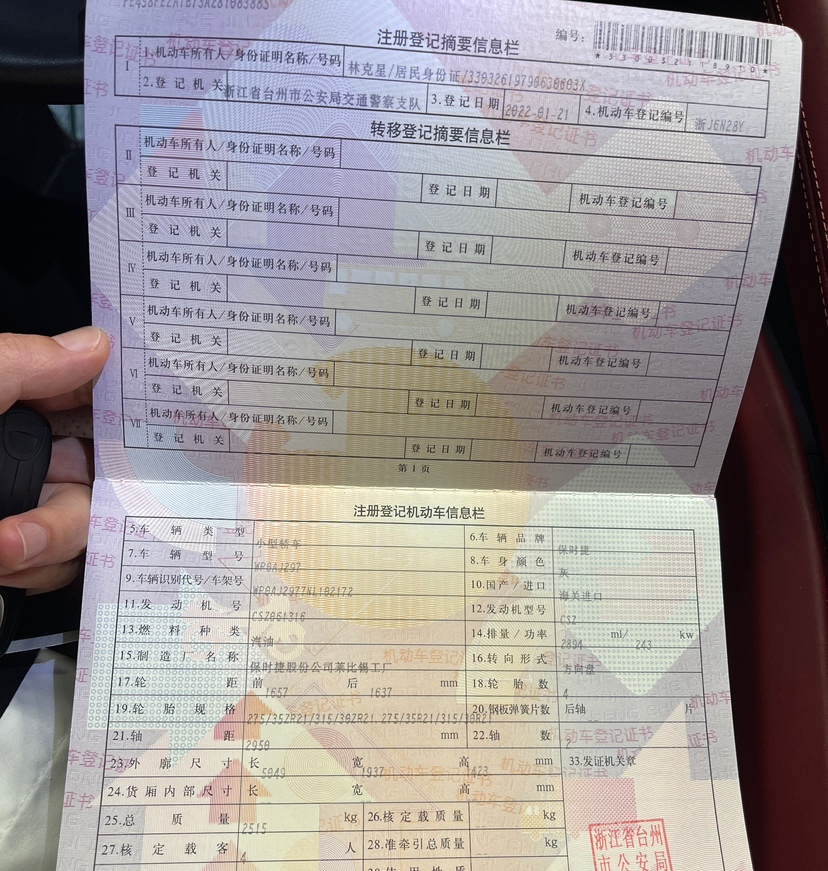 注册登记摘要信息栏
编号:
I 1.机动车所有人/身份证明名称/号码 林克星/居民身份证/
2.登记机关 浙江省台州市公安局交通警察支队 3.登记日期 2022-01-21 4.机动车登记编号 浙J6N28Y
转移登记摘要信息栏
II 机动车所有人/身份证明名称/号码
登记机关 登记日期 机动车登记编号
III 机动车所有人/身份证明名称/号码
登记机关 登记日期 机动车登记编号
IV 机动车所有人/身份证明名称/号码
登记机关 登记日期 机动车登记编号
V 机动车所有人/身份证明名称/号码
登记机关 登记日期 机动车登记编号
VI 机动车所有人/身份证明名称/号码
登记机关 登记日期 机动车登记编号
VII 机动车所有人/身份证明名称/号码
登记机关 登记日期 机动车登记编号
第1页
注册登记机动车信息栏
5.车辆类型 小型轿车 6.车辆品牌 保时捷
7.车辆型号 WP0AJ297 8.车身颜色 灰
9.车辆识别代号/车架号 10.国产/进口 海关进口
11.发动机号 CSZ061316 12.发动机型号 CSZ
13.燃料种类 汽油 14.排量/功率 2894 ml/ 243 kw
15.制造厂名称 保时捷股份公司莱比锡工厂 16.转向形式 方向盘
17.轮距 前 1657 后 1637 mm 18.轮胎数 4
19.轮胎规格 275/35ZR21/315/30ZR21,275/35R21/315/30R21 20.钢板弹簧片数 后轴 片
21.轴距 2950 mm 22.轴数 2
23.外廓尺寸 长 5049 宽 1937 高 1423 mm 33.发证机关章
24.货厢内部尺寸 长 宽 高 mm
25.总质量 2515 kg 26.核定载质量 -- kg
27.核定载客 4 人 28.准牵引总质量 -- kg
浙江省台州
市公安局